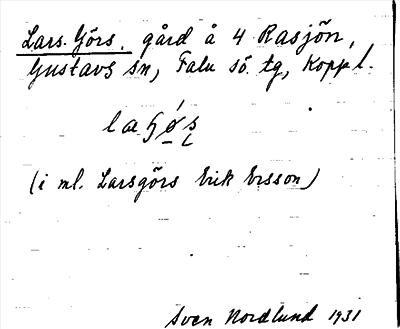 Lars-Görs, gård å 4 Rasjön,
Gustavs sn, Falu sö. tg, Kopp l.
(i ml. Larsgörs Erik Ersson)
Sven Nordlund 1931